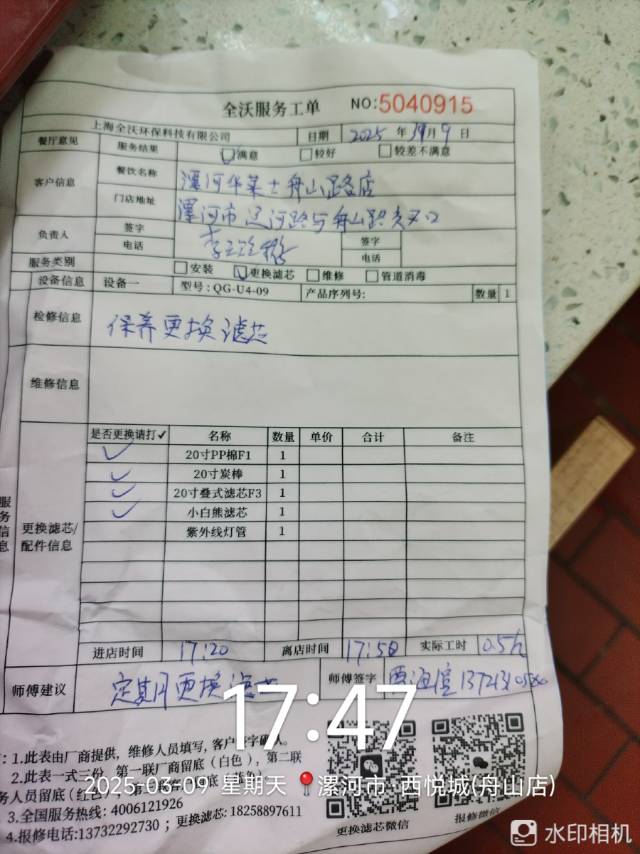 全沃服务工单 NO:5040915
上海全沃环保科技有限公司 日期 2025 年 月 9 日
餐厅意见 服务结果 满意 较好 较差不满意
客户信息 餐饮名称 漯河华莱士舟山路店
门店地址 漯河市辽河路与舟山路交叉口
负责人 签字 签字
电话 电话
服务类别 安装 更换滤芯 维修 管道消毒
设备信息 设备一 型号:QG-U4-09 产品序列号: 数量 1
检修信息 保养更换滤芯
维修信息
是否更换请打✓ 名称 数量 单价 合计 备注
✓ 20寸PP棉F1 1
✓ 20寸炭棒 1
✓ 20寸叠式滤芯F3 1
✓ 小白熊滤芯 1
紫外线灯管 1
服务信息 更换滤芯/
配件信息
进店时间 17:20 离店时间 17:50 实际工时 0.5h
师傅建议 定期更换滤芯 师傅签字
17:47
2025-03-09 星期天 漯河市 西悦城(舟山店)
:1.此表由厂商提供，维修人员填写,客户签字确认。
2.此表一式三份，第一联厂商留底（白色）,第二联
务人员留底(红色)
3.全国服务热线: 4006121926
4.报修电话:13732292730 ; 更换滤芯: 18258897611
更换滤芯微信
报修微信
水印相机